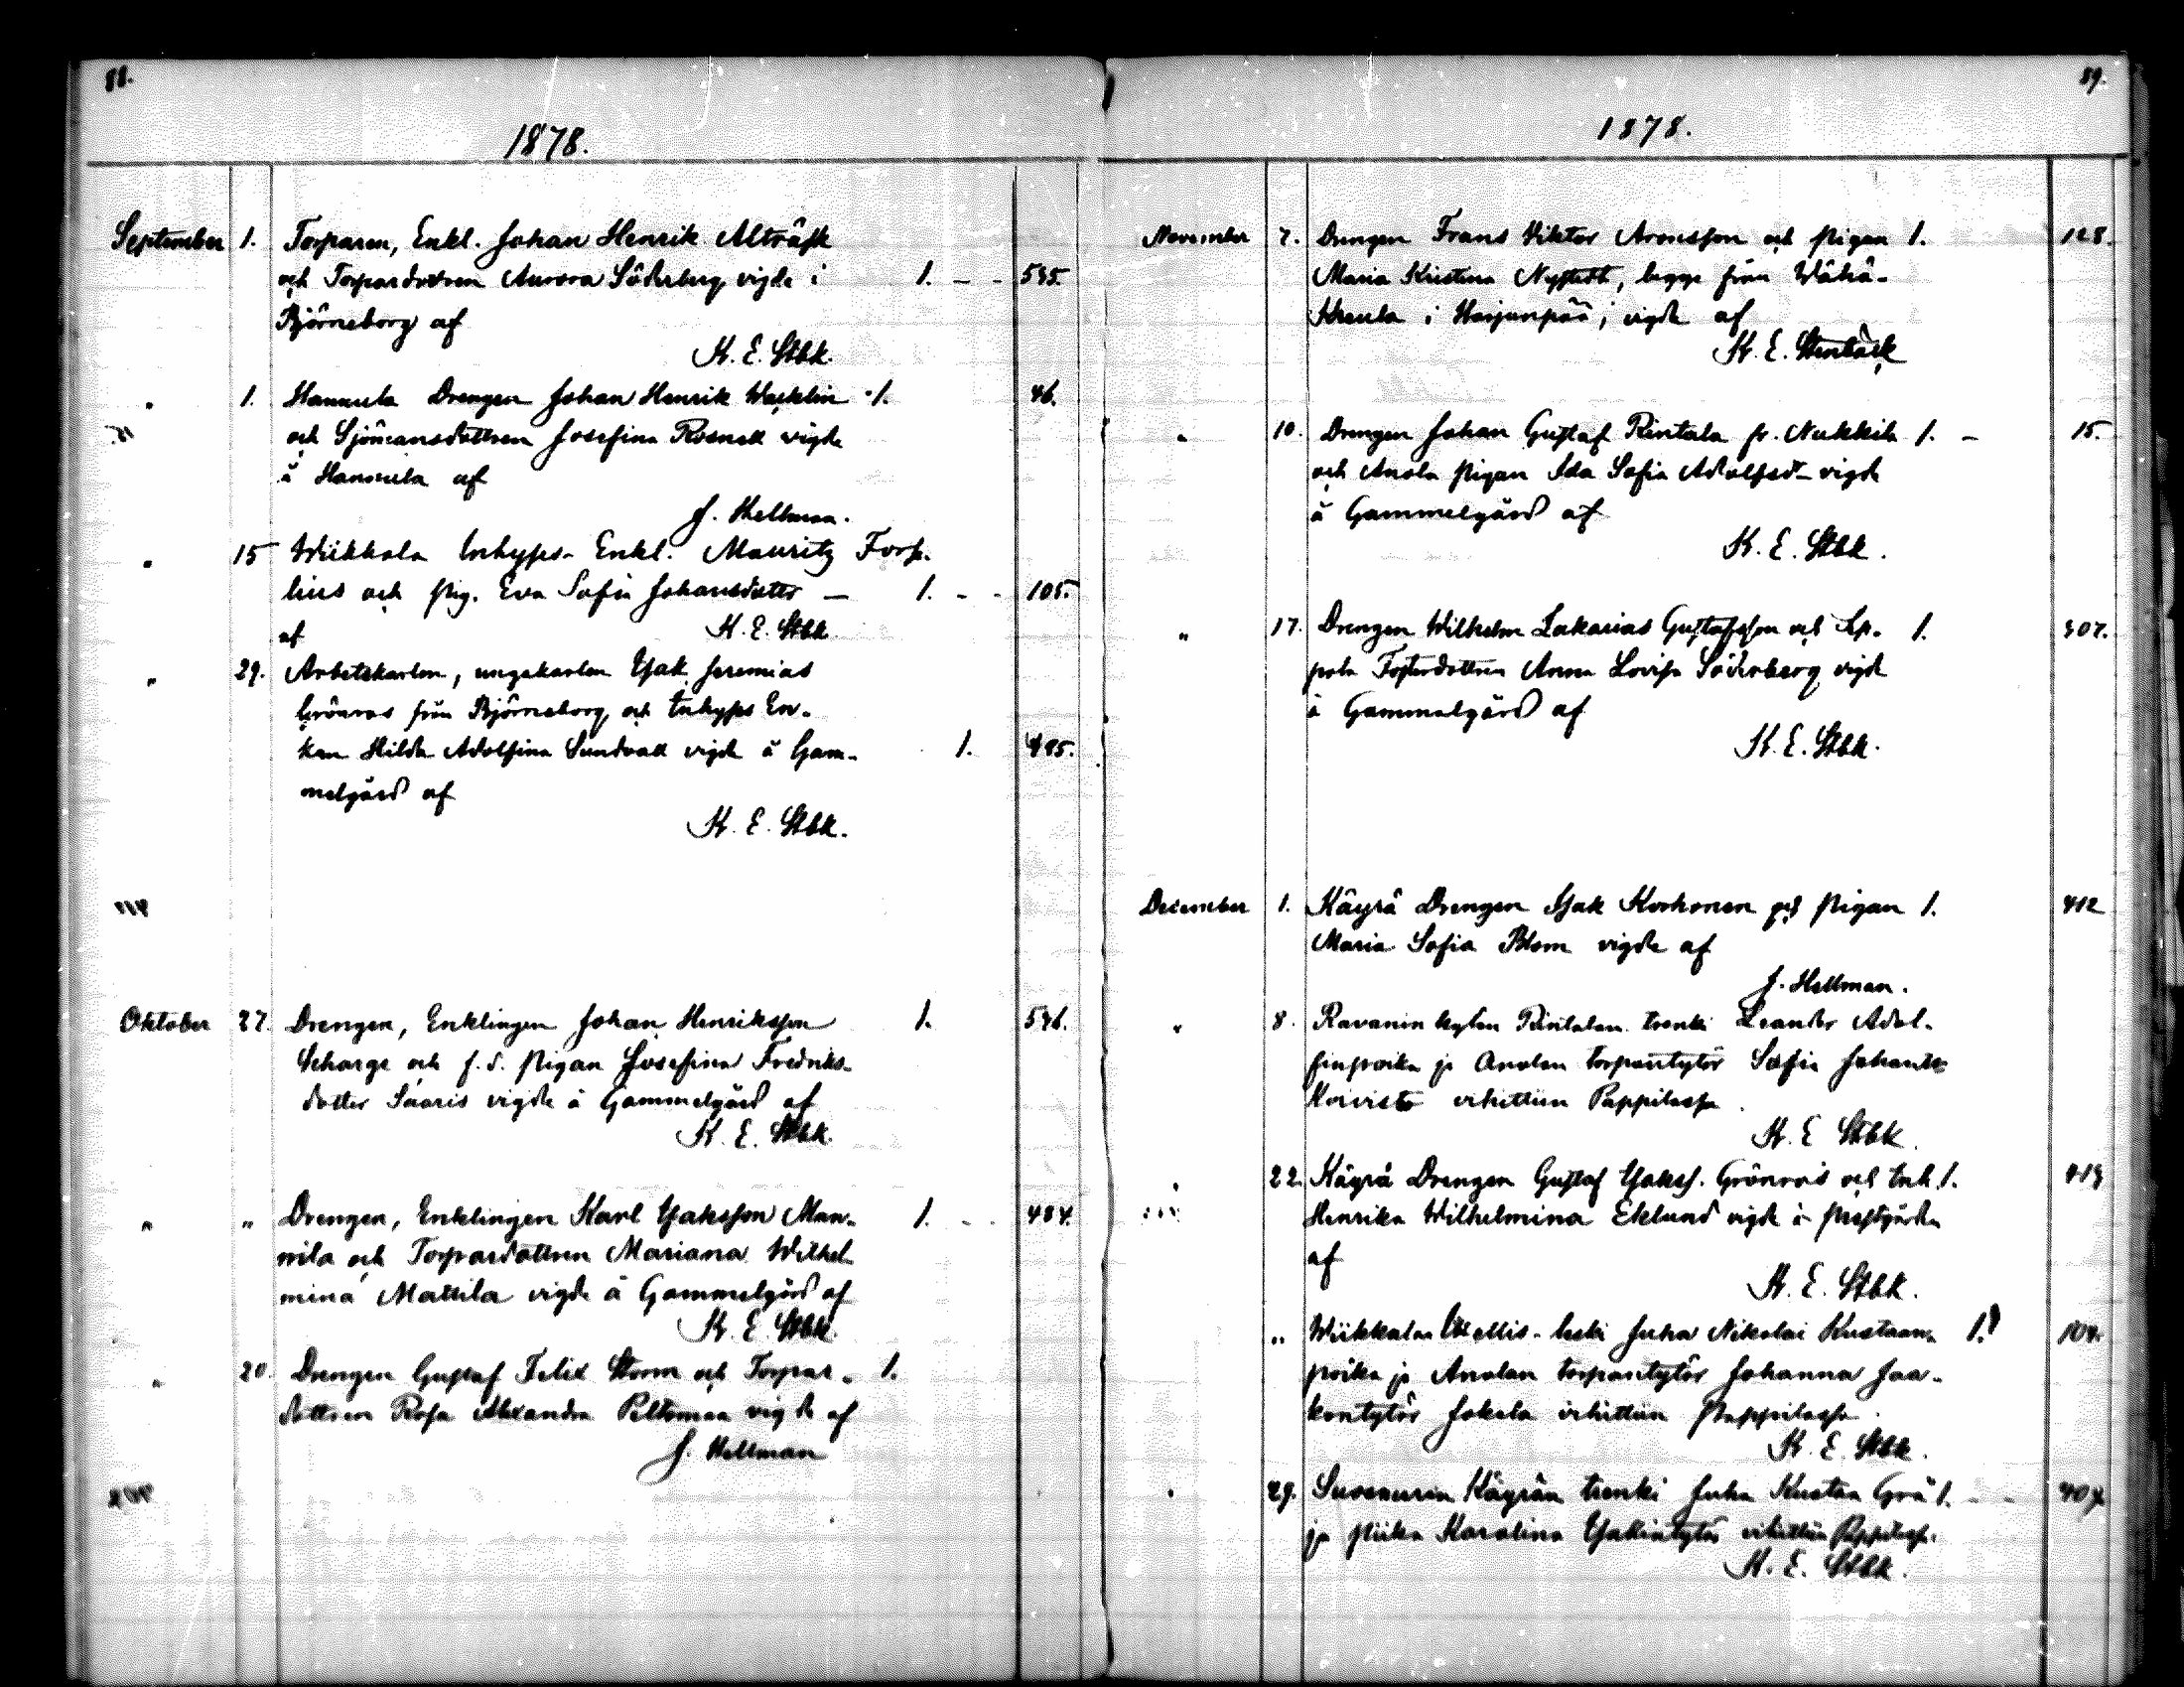 88.
1878.
September 1. Torparen, Enkl. Johan Henrik Alträsk
och Torparedottren Aurora Söderberg vigde i 1. — - 535.
Björneborg af
K. E. Stbk.
" 1. Hannula Drengen Johan Henrik Wacklin 1. 46.
och Sjömansdottren Josefina Rosnell vigde
å Hannula af
J. Hellman.
" 15 Wiikkala Inhyses Enkl. Mauritz
och Pig. Eva Sofia Johansdotter — 1. - - 105.
af K. E. Stbk
" 29. Arbetskarlen, ungekarlen Isak Jeremias
Grönroos från Björneborg och Inhyses En-
kan Hilda Adolfina Sundvall vigde å Gam- 1. 495.
melgård af
K. E. Stbk.
Oktober 27. Drengen, Enklingen Johan Henriksson 1. 546.
och f.d. Pigan Josefina Fredriks-
dotter Saaris vigde å Gammelgård af
K. E. Stbk.
" " Drengen, Enklingen Karl Isaksson Man- 1. - - 484.
nila och Torparedottren Mariana Wilhel
mina Mattila vigde å Gammelgård af
K. E. Stbk
" 20. Drengen Gustaf Felix Storm och Torpar- 1.
dottren Rosa Alexandra Peltomaa vigde af
J. Hellman
89.
1878.
November 7. Drengen Frans Viktor Aronsson och Pigan 1. 128.
Maria Kristina Nystedt, begge från Wähä-
i Harjunpää, vigde af
K. E. Stenbäck
" 10. Drengen Johan Gustaf Rintala fr. Nakkila 1. — 15.
och Anola Pigan Ida Sofia Adolfsd- vigde
å Gammelgård af
K. E. Stbk.
" 17. Drengen Wilhelm Zakarias Gustafsson och Lp- 1. 307.
pola Fosterdottren Anna Lovisa Söderberg vigde
å Gammelgård af
K. E. Stbk.
December 1. Käyrä Drengen Isak Korhonen och Pigan 1. 412
Maria Sofia Blom vigde af
J. Hellman.
" 8. Ravanin kylän Rintalan trenki Leander Adol-
finpoika ja Anolan torparitytör Sofia
Koivisto vihittiin Pappilassa.
K. E Stbk.
" 22. Käyrä Drengen Gustaf Isakss. Grönroos och Inh. 1. 419
Henrika Wilhelmina Eklund vigde i Prestgården
af
K. E. Stbk.
" Wiikkalan leski Juha Nikolai Kustaan- 1. 104.
poika ja Anolan torparitytör Johanna Jaa-
kontytör Jokela vihittiin Pappilassa.
K. E. Stbk.
" 29. Käyrän trenki Juha Kustaa 1. - - 407
ja Piika Karolina Isakintytör vihittiin Pappilassa.
K. E. Stbk.